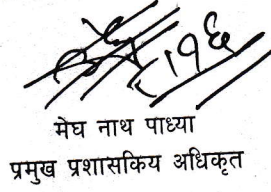 मेघ नाथ पाध्या
प्रमुख प्रशासकिय अधिकृत